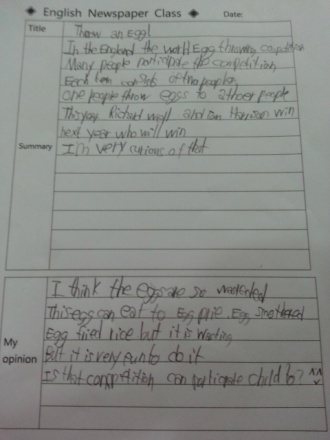 English Newspaper Class Date:
Title Throw an egg!
In the England the world Egg throwing competition
Many people participate the competition
Each team consists of two people
One people throw eggs to other people
This year Richard and Harrison win
next year who will win
Summary I'm very curious of that
I think the eggs are so wasted
This egg can eat to Egg , Egg
Egg fried rice but it is wasting
My opinion But it is very fun to do it
Is that competition can participate child to? ^^